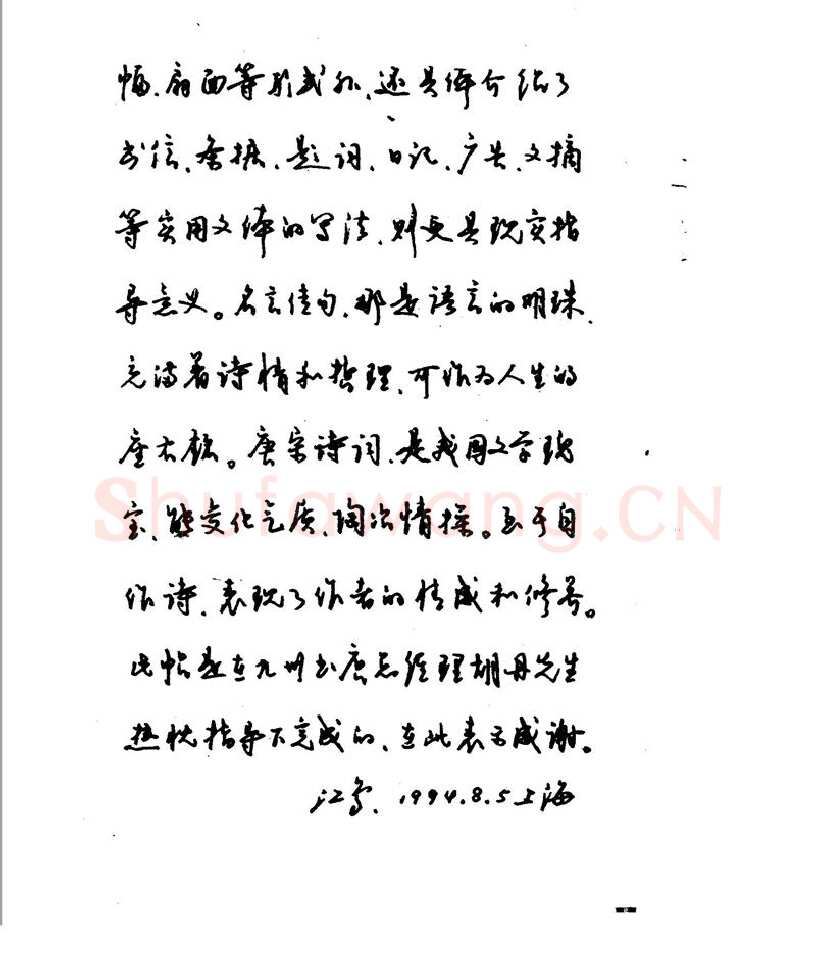 幅、扇面等形式外、还具体介绍了
书信、条据、题词、日记、广告、文摘
等实用文体的写法、则更具现实指
导意义。名言佳句、那是语言的明珠、
充满着诗情和哲理、可作为人生的
座右铭。唐宋诗词、是我国文学瑰
宝、能变化气质、陶冶情操。至于自
作诗、表现了作者的情感和修养。
此帖是在九州书店总经理胡丹先生
热忱指导下完成的、在此表示感谢。
江鸟、1994.8.5上海
Shufawang.CN